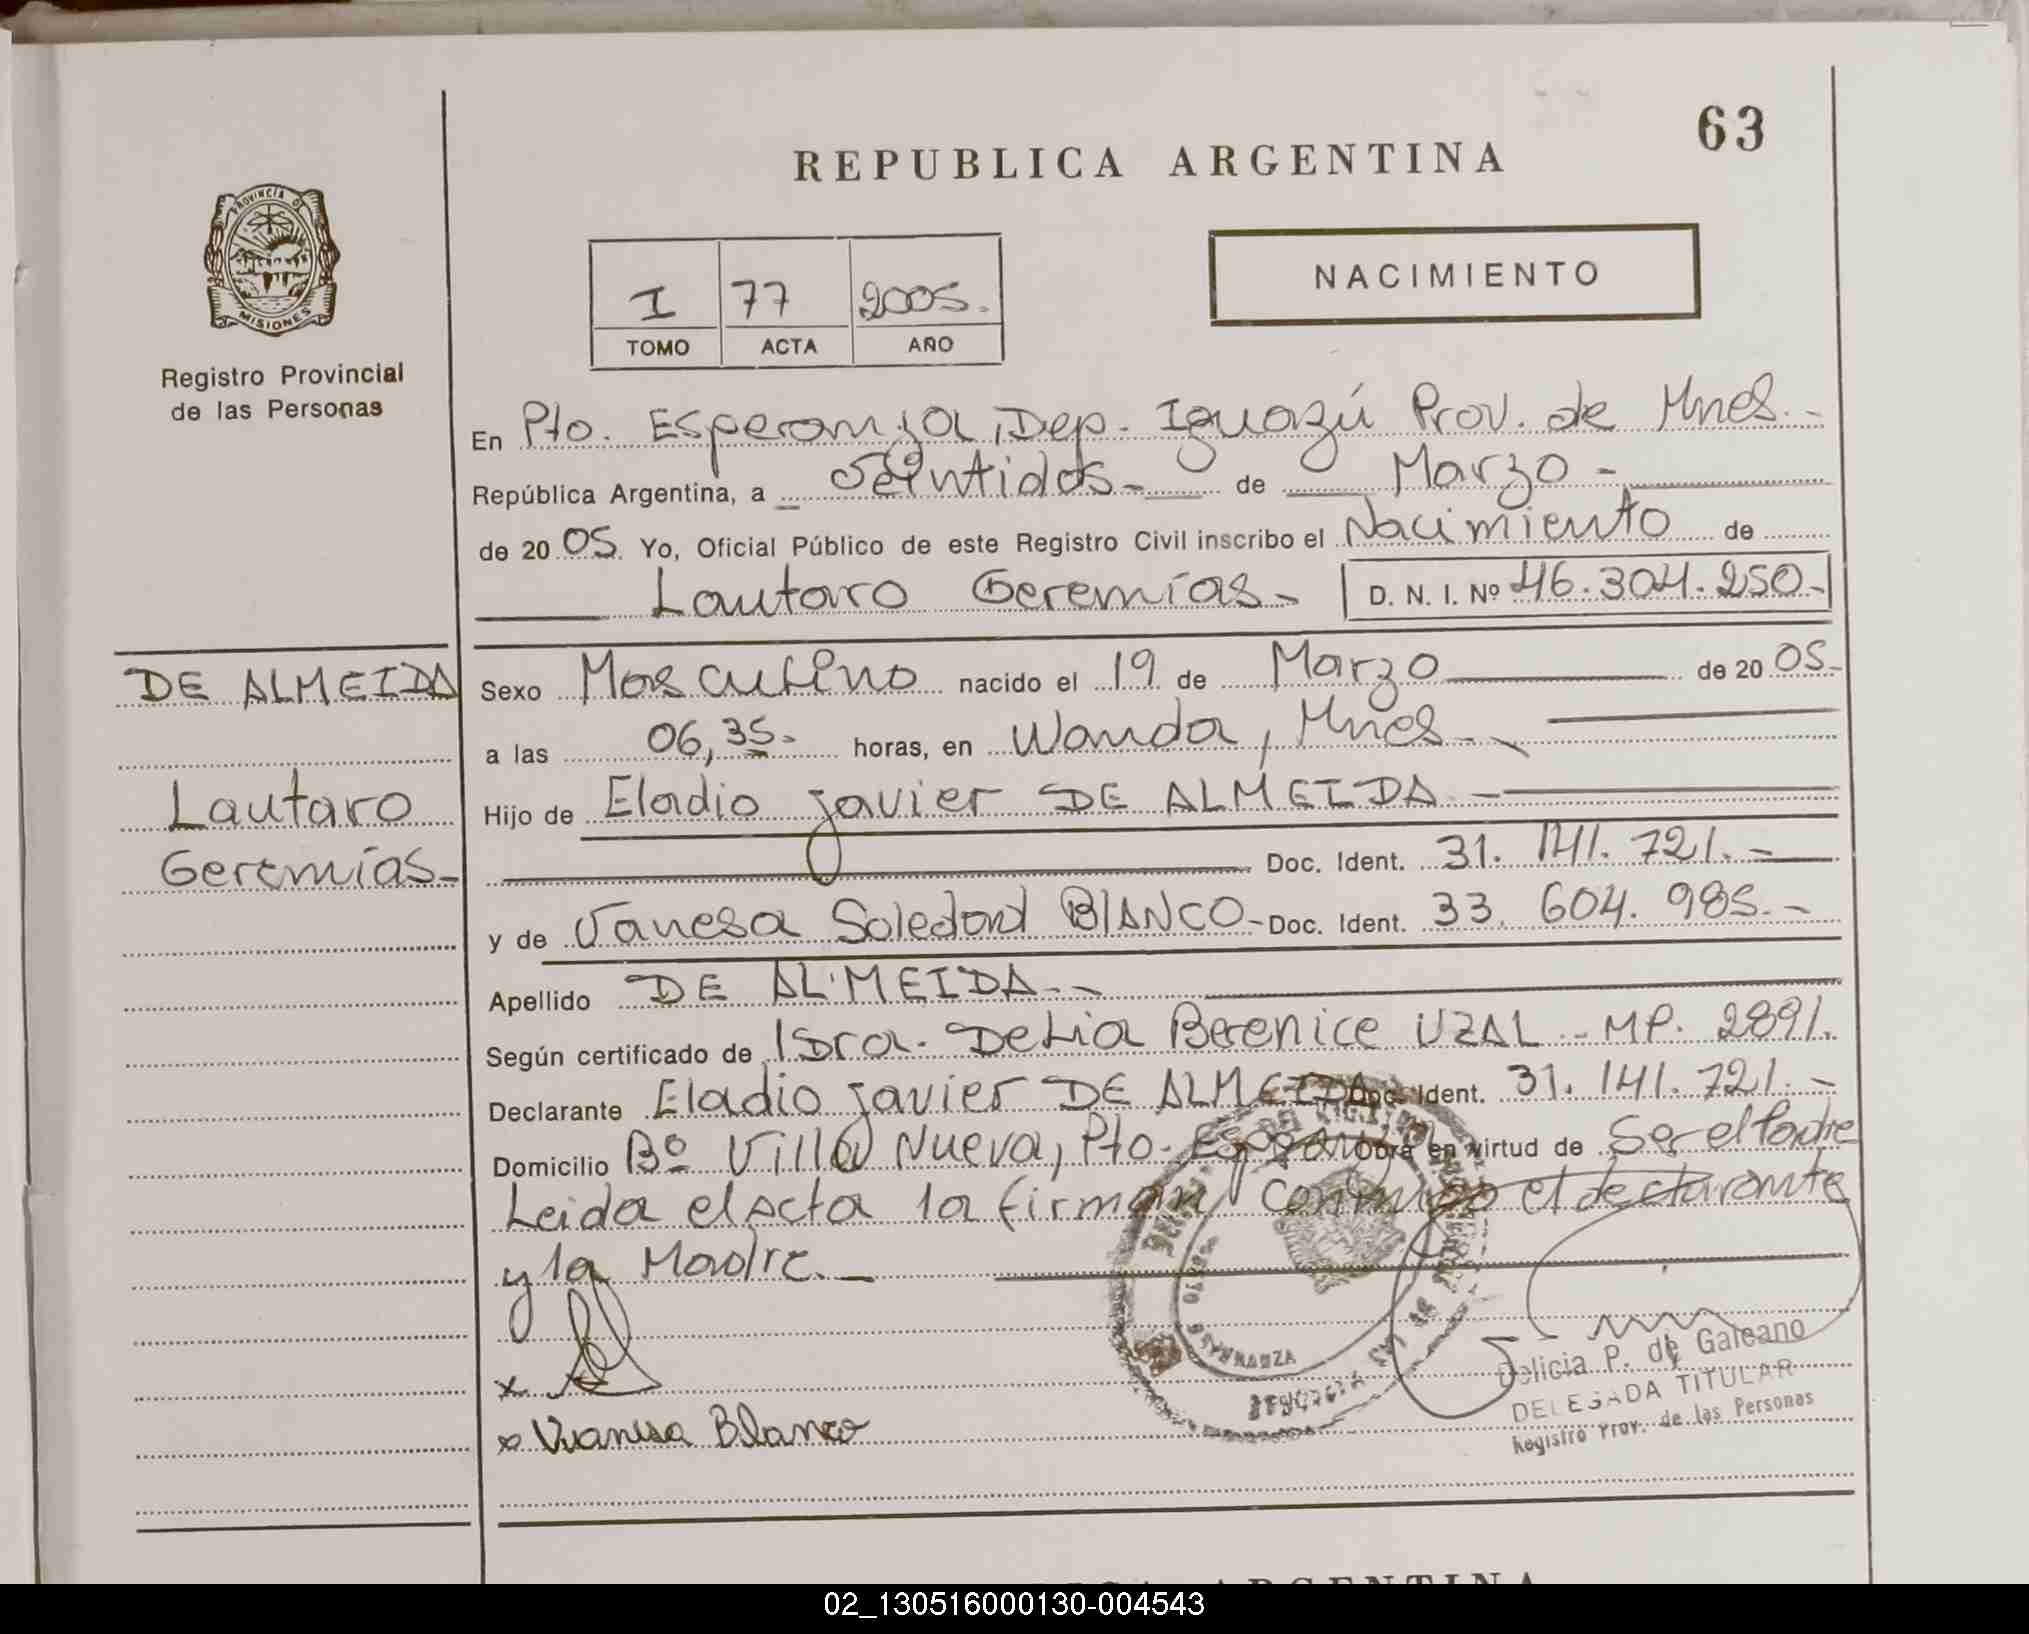 63
REPUBLICA ARGENTINA
NACIMIENTO
PROVINCIA DE
MISIONES
Registro Provincial
de las Personas
I 77 2005.
TOMO ACTA AÑO
En Pto. Esperanza, Dep. Iguazú Prov. de Mnes.-
República Argentina, a Veintidos- de Marzo-
de 2005. Yo, Oficial Público de este Registro Civil inscribo el Nacimiento de
Lautaro Geremías- D. N. I. Nº 46.304.250-
DE ALMEIDA
Lautaro
Geremías-
Sexo Masculino nacido el 19 de Marzo de 2005.-
a las 06,35- horas, en Wanda, Mnes-
Hijo de Eladio Javier DE ALMEIDA-
Doc. Ident. 31.141.721.-
y de Vanesa Soledad BLANCO- Doc. Ident. 33.604.985.-
Apellido DE ALMEIDA.-
Según certificado de Dra. Delia Berenice UZAL - MP. 2891.
Declarante Eladio Javier DE ALMEIDA Doc. Ident. 31.141.721.-
Domicilio Bº Villa Nueva, Pto. Esperanza Obra en virtud de Ser el Padre
Leida el acta la firman conmigo el declarante
y la Madre.-
x
x Vanesa Blanco
Delicia P. de Galeano
DELEGADA TITULAR
Registro Prov. de las Personas
ARGENTINA
02_130516000130-004543